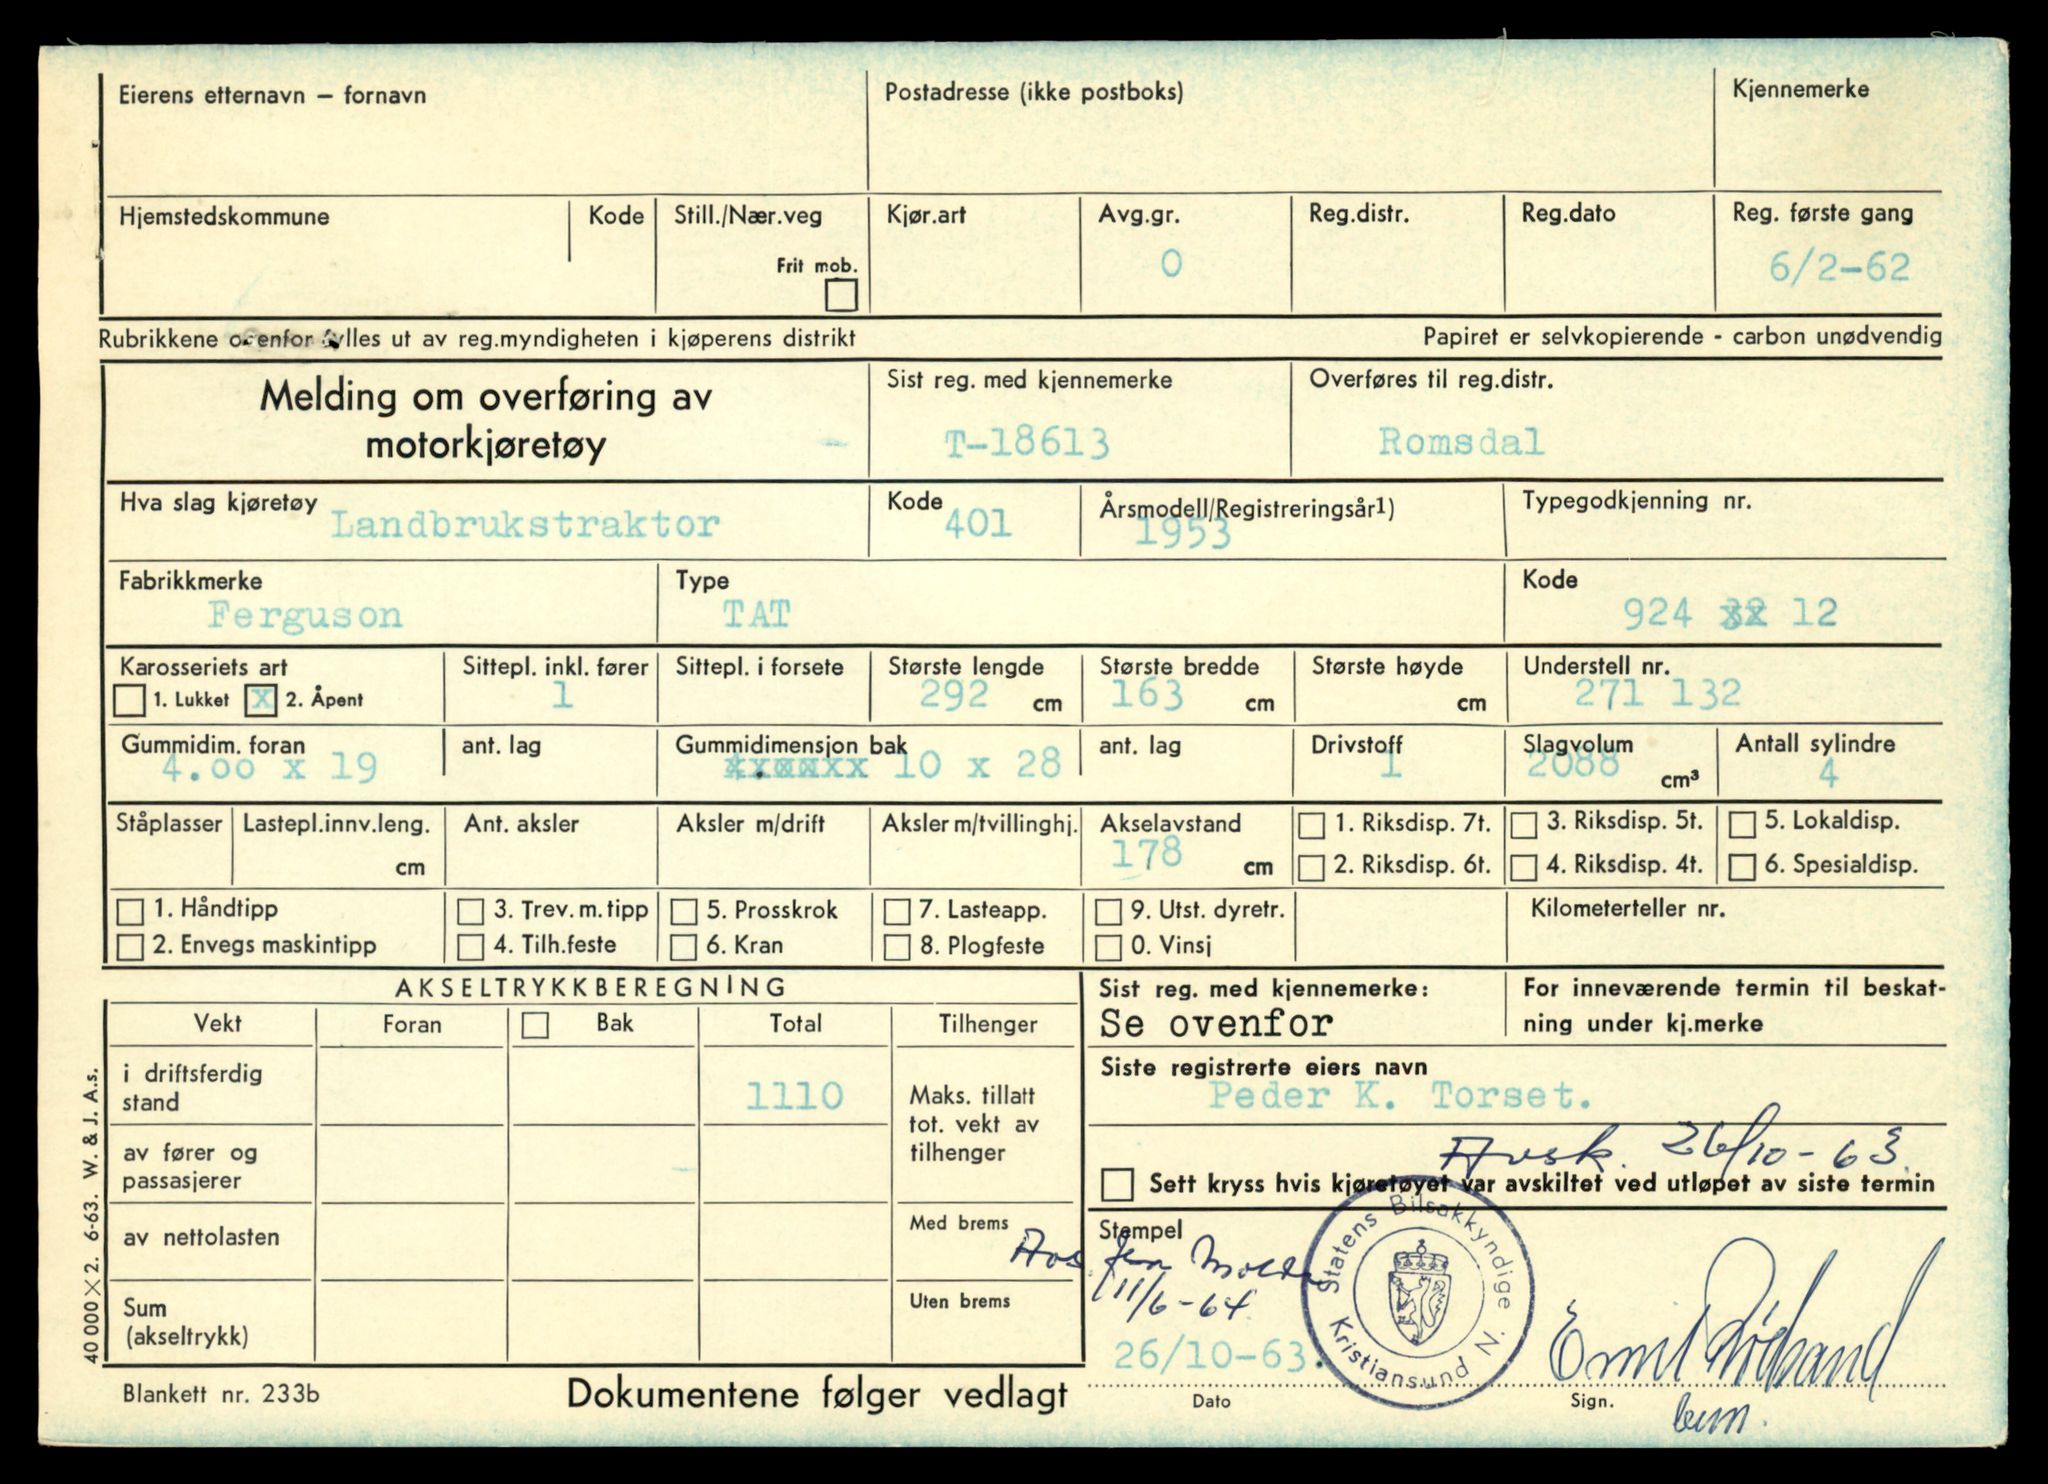 Eierens etternavn – fornavn
Postadresse (ikke postboks)
Kjennemerke
Hjemstedskommune
Kode
Still./Nær.veg
Frit mob.
Kjør.art
Avg.gr.
0
Reg.distr.
Reg.dato
Reg. første gang
6/2-62
Rubrikkene ovenfor fylles ut av reg.myndigheten i kjøperens distrikt
Papiret er selvkopierende - carbon unødvendig
Melding om overføring av
motorkjøretøy
Sist reg. med kjennemerke
T-18613
Overføres til reg.distr.
Romsdal
Hva slag kjøretøy
Landbrukstraktor
Kode
401
Årsmodell/Registreringsår1)
1953
Typegodkjenning nr.
Fabrikkmerke
Ferguson
Type
TAT
Kode
924 12
Karosseriets art
1. Lukket x 2. Åpent
Sittepl. inkl. fører
1
Sittepl. i forsete
Største lengde
292 cm
Største bredde
163 cm
Største høyde
cm
Understell nr.
271 132
Gummidim. foran
4.oo x 19
ant. lag
Gummidimensjon bak
10 x 28
ant. lag
Drivstoff
1
Slagvolum
2088 cm³
Antall sylindre
4
Ståplasser
Lastepl.innv.leng.
cm
Ant. aksler
Aksler m/drift
Aksler m/tvillinghj.
Akselavstand
178 cm
1. Riksdisp. 7t.
2. Riksdisp. 6t.
3. Riksdisp. 5t.
4. Riksdisp. 4t.
5. Lokaldisp.
6. Spesialdisp.
1. Håndtipp
2. Envegs maskintipp
3. Trev. m. tipp
4. Tilh.feste
5. Prosskrok
6. Kran
7. Lasteapp.
8. Plogfeste
9. Utst. dyretr.
0. Vinsj
Kilometerteller nr.
AKSELTRYKKBEREGNING
Vekt
Foran
Bak
Total
Tilhenger
i driftsferdig
stand
1110
Maks. tillatt
tot. vekt av
tilhenger
av fører og
passasjerer
av nettolasten
Med brems
Sum
(akseltrykk)
Uten brems
Sist reg. med kjennemerke:
Se ovenfor
For inneværende termin til beskat-
ning under kj.merke
Siste registrerte eiers navn
Peder K. Torset.
Avsk. 26/10-63.
Sett kryss hvis kjøretøyet var avskiltet ved utløpet av siste termin
Stempel
11/6-64
26/10-63.
Statens Bilsakkyndige
Kristiansund N.
Dato
Sign.
40 000 × 2. 6-63. W. & J. A.s.
Blankett nr. 233b
Dokumentene følger vedlagt